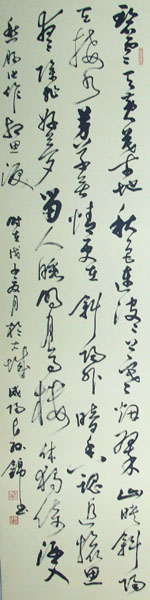 碧雲天黃葉地秋色連波波上寒烟翠山映斜陽
天接水芳草無情更在斜陽外黯鄉魂追旅思
夜夜除非好夢留人睡明月高樓休獨倚酒入
愁腸化作相思淚
時在戊子夏月於古城咸陽孫錦書